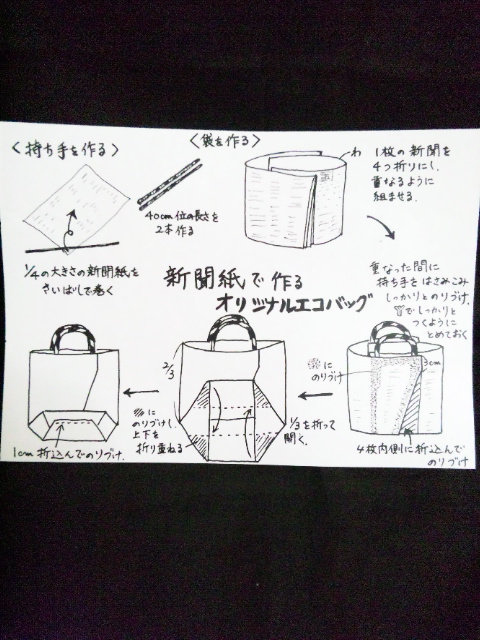 <持ち手を作る>
1/4の大きさの新聞紙を
さいばしで巻く
40cm位の長さを
2本作る
<袋を作る>
わ
1枚の新聞を
4つ折りにし、
重なるように
組ませる.
新聞紙で作る
オリジナルエコバッグ
重なった間に
持ち手をはさみこみ
しっかりとのりづけ。
でしっかりと
つくように
とめておく
3cm
4枚内側に折込んで
のりづけ
に
のりづけ
2/3
1/3を折って
開く.
に
のりづけし
上下を
折り重ねる
1cm折込んでのりづけ.